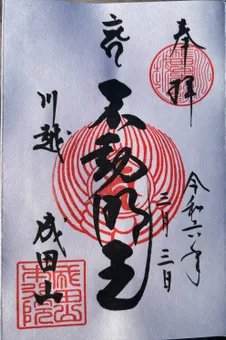 奉拝
令和六年
三月三日
不動明王
川越
成田山